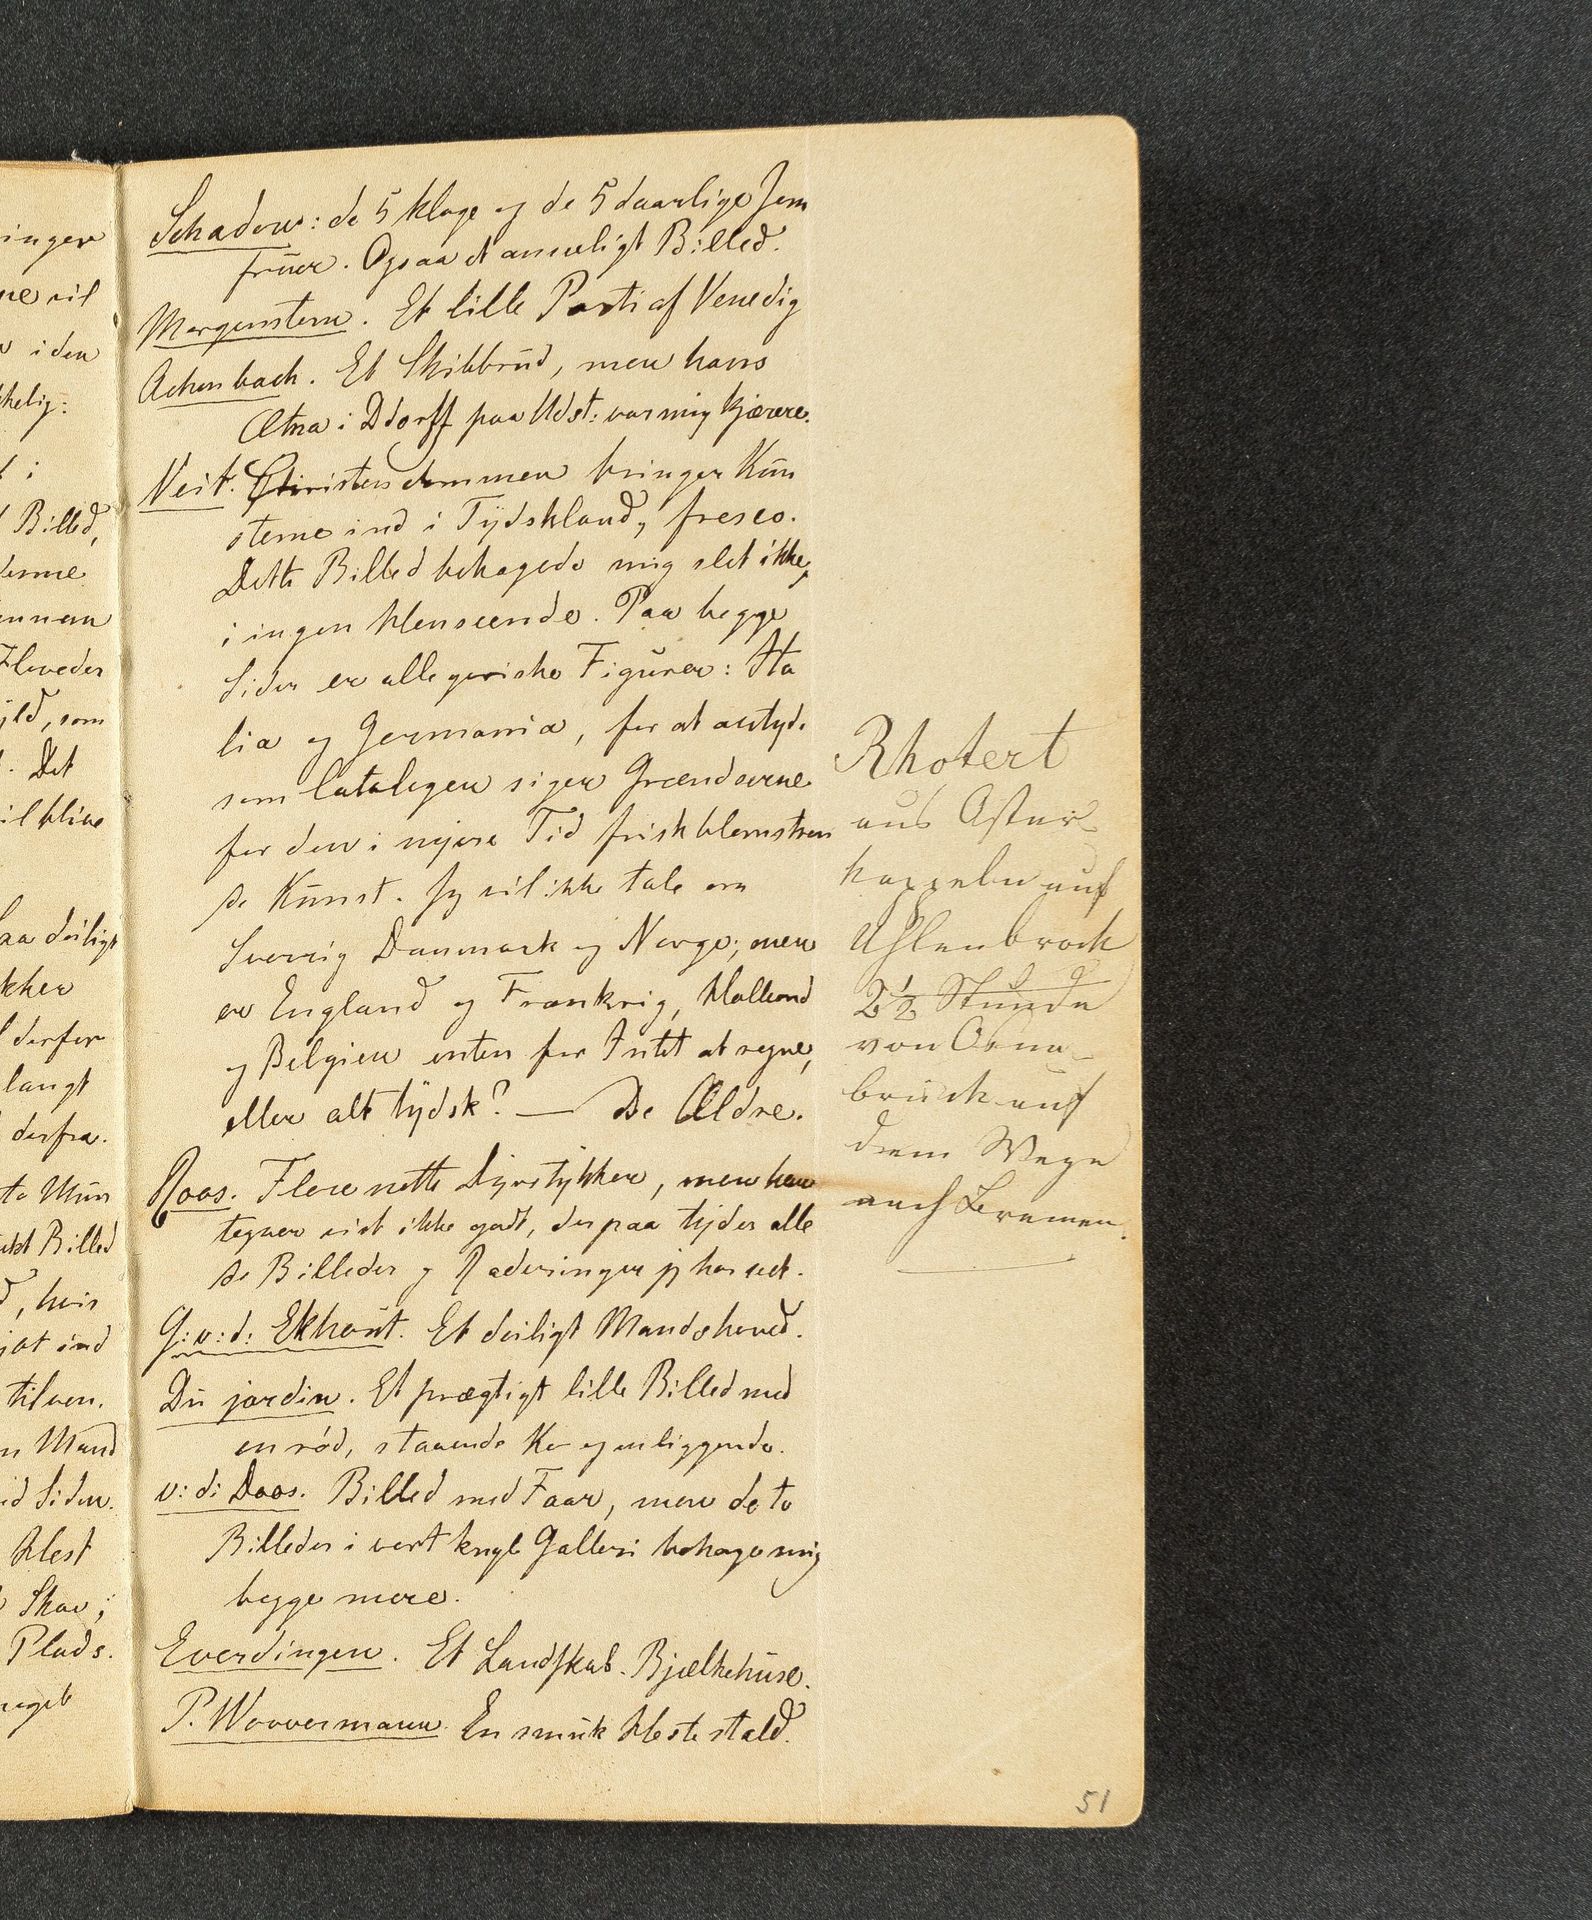 inger
ne vil
i den
kelig:
t i
Billed,
denne
ennem
Hoveder
yld, som
. Det
il blive
saa deiligt
kker
derfor
langt
derfra.
te Mün
Billed
d, hvis
ind
til ven.
n Mand
ed Siden.
Hest
Skov;
Plads.
noget
Schadow: de 5 kloge og de 5 daarlige Jom
früer. Ogsaa et anseeligt Billed.
Morgenstern. Et lille Parti af Venedig
Achenbach. Et Skibbrüd, men hans
Ætna i Ddorff paa Udst: var mig kjærere.
Veit. Christendommen bringer Kün
sterne ind i Tÿdskland, fresco.
Dette Billed behagede mig slet ikke,
i ingen Henseende. Paa begge
Sider er allegoriske Figürer: Ita
lia og Germania, for at antyde
som Catalogen siger Grændserne
for den i nyere Tid friskblomstren
de Künst. Jeg vil ikke tale om
Sverrig Danmark og Norge; men
er England og Frankrig, Holland
og Belgien enten for Intet at regne,
eller alt tÿdsk? — De Ældre.
Roos. Flere nette Dyrstÿkker, men han
tegner vist ikke godt, der paa tyder alle
de Billeder og Raderinger jeg har seet.
G: v: d: Ekhoüt. Et deiligt Mandshoved.
Dü jardin. Et prægtigt lille Billed med
en rød, staaende Ko og en liggende.
v: d: Does. Billed med Faar, men de to
Billeder i vort kngl Galleri behage mig
begge mere.
Everdingen. Et Landskab. Bjælkehüse.
P. Wouvermann. En smük Hestestald.
Rhotert
aus Oster
kappeln auf
Uhlenbrock
2½ Stunde
von Osna
brück auf
dem Wege
nach Bremen.
51